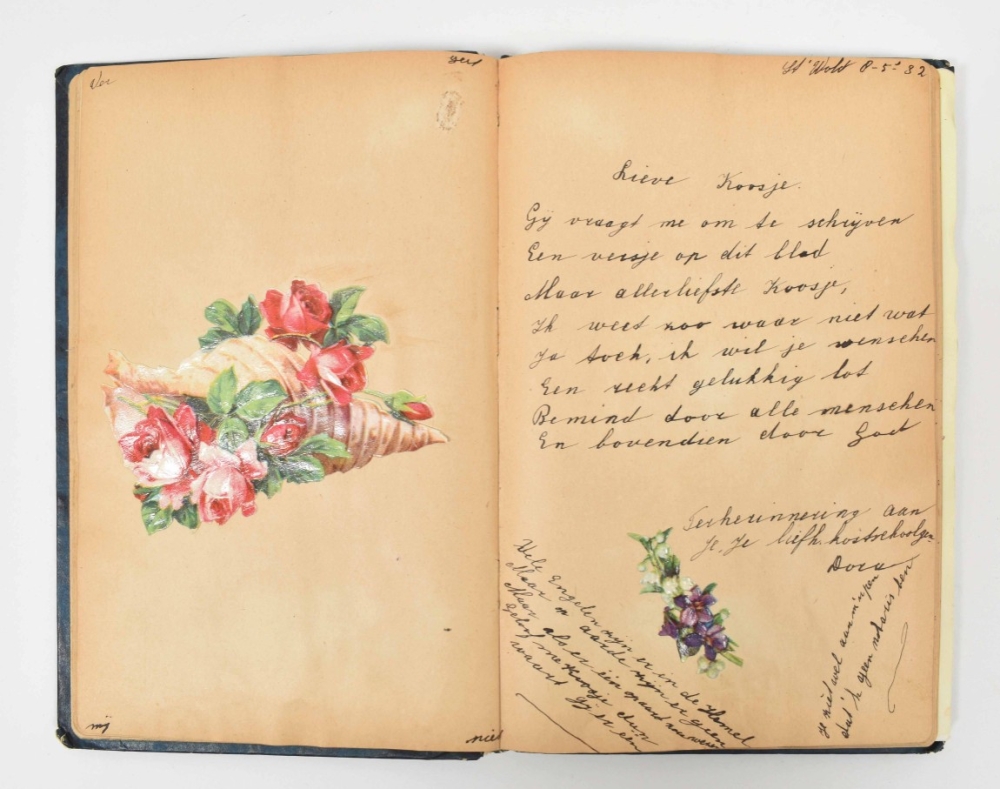 Ver
geet
mij
niet
St' Wolt 8-5-'32
Lieve Koosje.
Gij vraagt me om te schrijven
Een versje op dit blad
Maar allerliefste Koosje,
Ik weet zoo waar niet wat
Ja toch, ik wil je wenschen
Een recht gelukkig lot
Bemind door alle menschen
En bovendien door God
Terherinnering aan
je liefh. kostschoolgen.
Dora
Vele Engelen zijn er in de Hemel
Maar op aarde zijn er geen
Maar als er één op aard zou wezen
Geloof me Koosje dan
waart gij er een
Je ziet wel aan m'n pen
dat 'k geen notaris ben